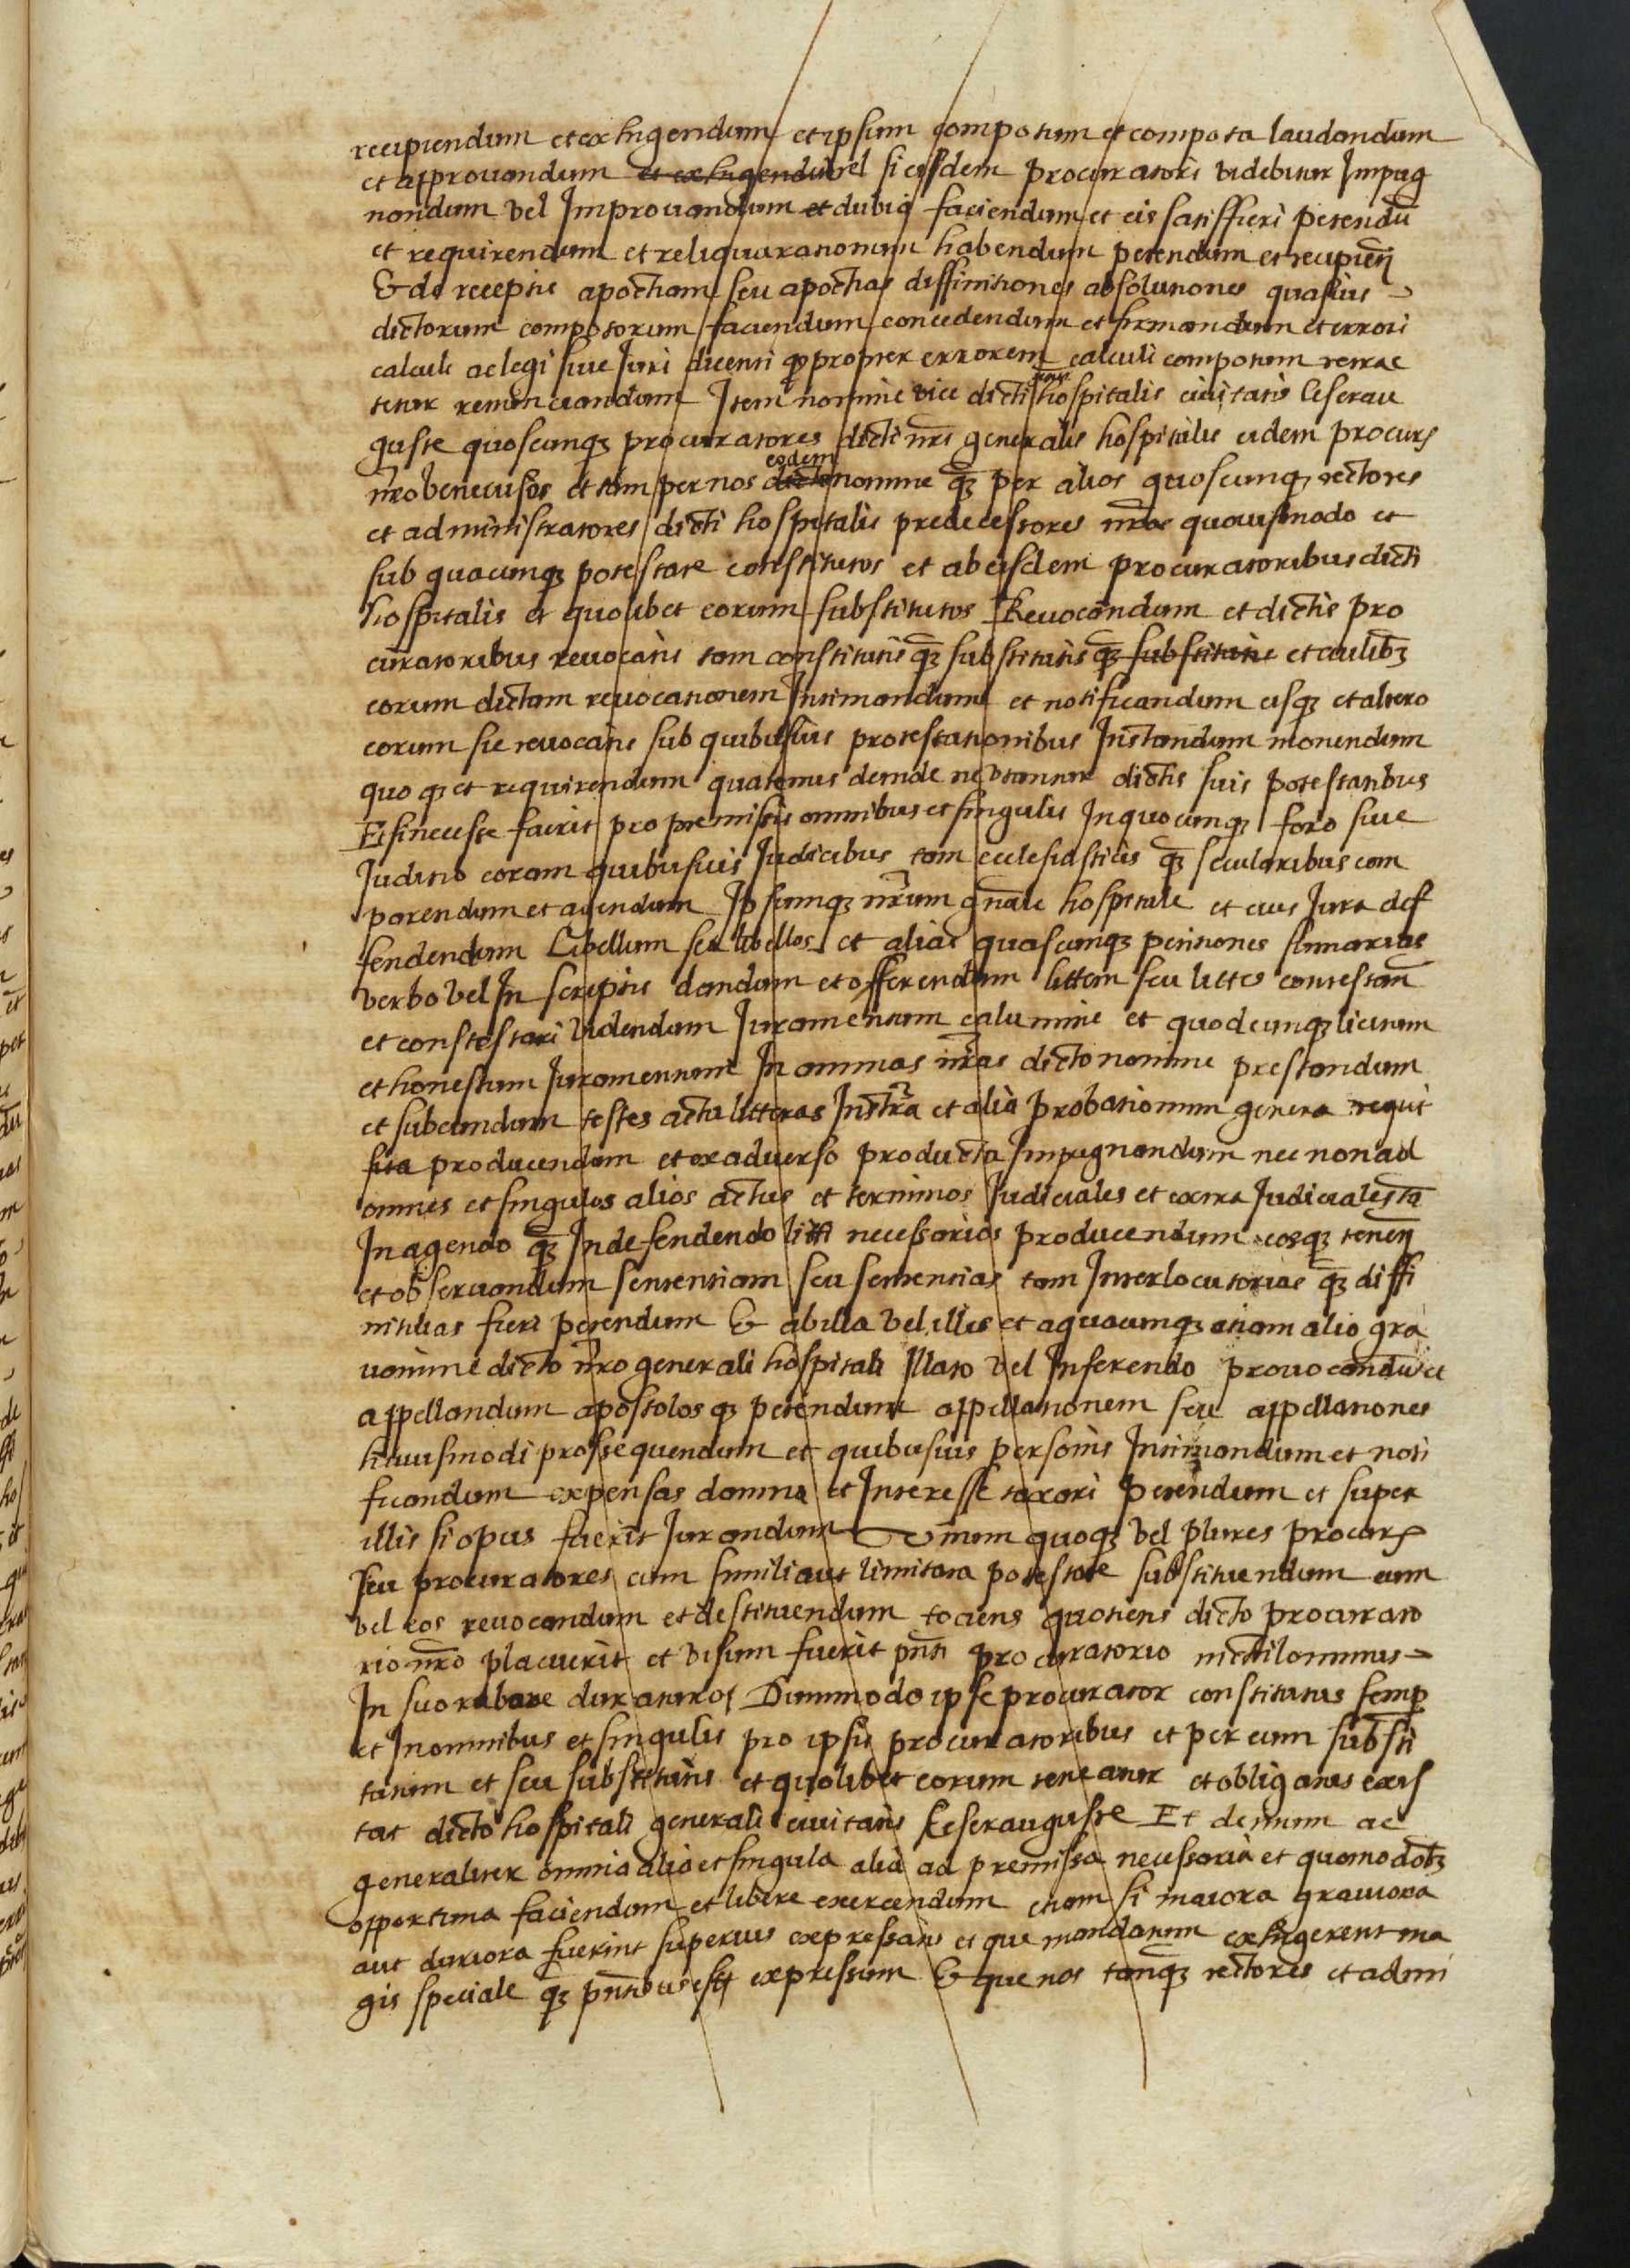 recipiendum et exhigendum et ipsum compotum et compota laudandum
et approuandum et exhigendu vel si eisdem procuratori videbitur Impug
nandum vel Improuandum et dubia faciendum et eis satisffieri petendū
et requirendum et reliqua rationum habendum petendum et recipien̄
& de receptis apocham seu apochas diffinitiones absolutiones quasuis
dictorum compotorum faciendum concedendum et firmandum et errori
calculi ac legi siue Juri dicenti qȝ propter errorem calculi compotum retrac
tetur renunciandum Item nomine vice dicti nrī hospitalis ciuitatis Ceserau
guste quoscunqȝ procuratores dicti nrī generalis hospitalis eidem procurꝭ
nrō benevisos et tam per nos dicto eodem nomine qȝ per alios quoscunqȝ rectores
et administratores dicti hospitalis predecessores nrōs quouismodo et
sub quacunqȝ potestate constitutos et ab eisdem procuratoribus dicti
hospitalis et quolibet eorum substitutos Reuocandum et dictis pro
curatoribus reuocatis tam constitutis qȝ substitutis qȝ substitutis et cuilibȝ
eorum dictam reuocationem Intimandum et notificandum eisqȝ et altero
eorum sic reuocatis sub quibusuis protestationibus Instandum monendum
quoqȝ et requirendum quatenus deinde ne vtantur dictis suis potestatibus
Et si necesse fuerit pro premissis omnibus et singulis In quocunqȝ foro siue
Juditio coram quibusuis Judicibus tam eclesiasticis qȝ secularibus com
parendum et agendum Ipsumqȝ nrūm gnāle hospitale et eius Jura def
fendendum Libellum seu libellos et alias quascunqȝ petitiones sumarias
verbo vel In scriptis dandum et offerendum littem seu littes contestan̄
et constestari videndum Juramentum calumnie et quodcunqȝ licitum
et honestum Juramentum In animas nrās dicto nomine prestandum
et subeundum testes acta litteras Instrā et alia probationum genera requi
sita producendum et ex aduerso producta Impugnandum nec non ad
omnes et singulos alios actus et terminos Judiciales et extra Judiciales tā
In agendo qȝ In defendendo litti necessarios producendum eosqȝ tenen̄
et obseruandum sententiam seu sententias tam Interlocutorias qȝ diffi
nitiuas fieri petendum & ab illa vel illis et a quacunqȝ etiam alio gra
uamine dicto nrō generali hospitali Illato vel Inferendo prouocandū et
appellandum apostolosqȝ petendum appellationem seu appellationes
huiusmodi prossequendum et quibusuis personis Intimandum et noti
ficandum expensas damna et Interesse taxari petendum et super
illis si opus fuerit Jurandum Vnum quoqȝ vel plures procurꝭ
seu procuratores cum simili aut limitata potestate substituendum eum
vel eos reuocandum et destituendum tociens quotiens dicto procurato
rio nrō placuerit et visum fuerit pn̄ti procuratorio nichilominus
In suo robore duraturos Dummodo ipse procurator constitutus semp̄
et In omnibus et singulis pro ipsis procuratoribus et per eum substi
tutum et seu substitutis et quolibet eorum teneatur et obligatus exis
tat dicto hospitali generali ciuitatis Ceserauguste Et demum ac
generaliter omnia alia et singula alia ad premissa necessaria et quomodolibȝ
opportuna faciendum et libere exercendum etiam si maiora grauiora
aut duriora fuerint superius expressatis et que mandatum exhigerent ma
gis speciale qȝ pn̄tibus est expressum & que nos tanqȝ rectores et admi